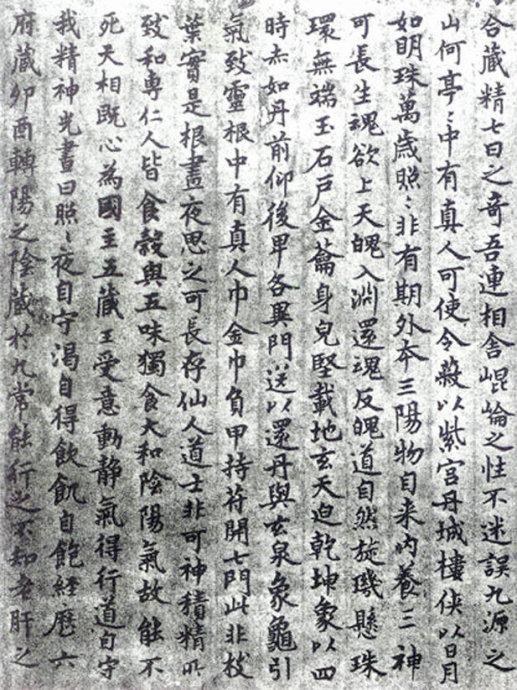 合藏精七日之奇吾連相舍崐崘之性不迷誤九源之
山何亭〻中有真人可使令蔽以紫宫丹城樓俠以日月
如明珠萬歲照〻非有期外本三陽物自来内養三神
可長生魂欲上天魄入淵還魂反魄道自然旋璣懸珠
環無端玉石戶金籥身皃堅載地玄天迫乾坤象以四
時赤如丹前仰後甲各異門送以還丹與玄泉象龜引
氣致靈根中有真人巾金巾負甲持符開七門此非枝
葉實是根晝夜思之可長存仙人道士非可神積精所
致和專仁人皆食穀與五味獨食大和陰陽氣故能不
死天相既心為國主五藏王受意動静氣得行道自守
我精神光晝日照〻夜自守渴自得飲飢自飽經歷六
府藏卯酉轉陽之陰藏於九常能行之不知老肝之